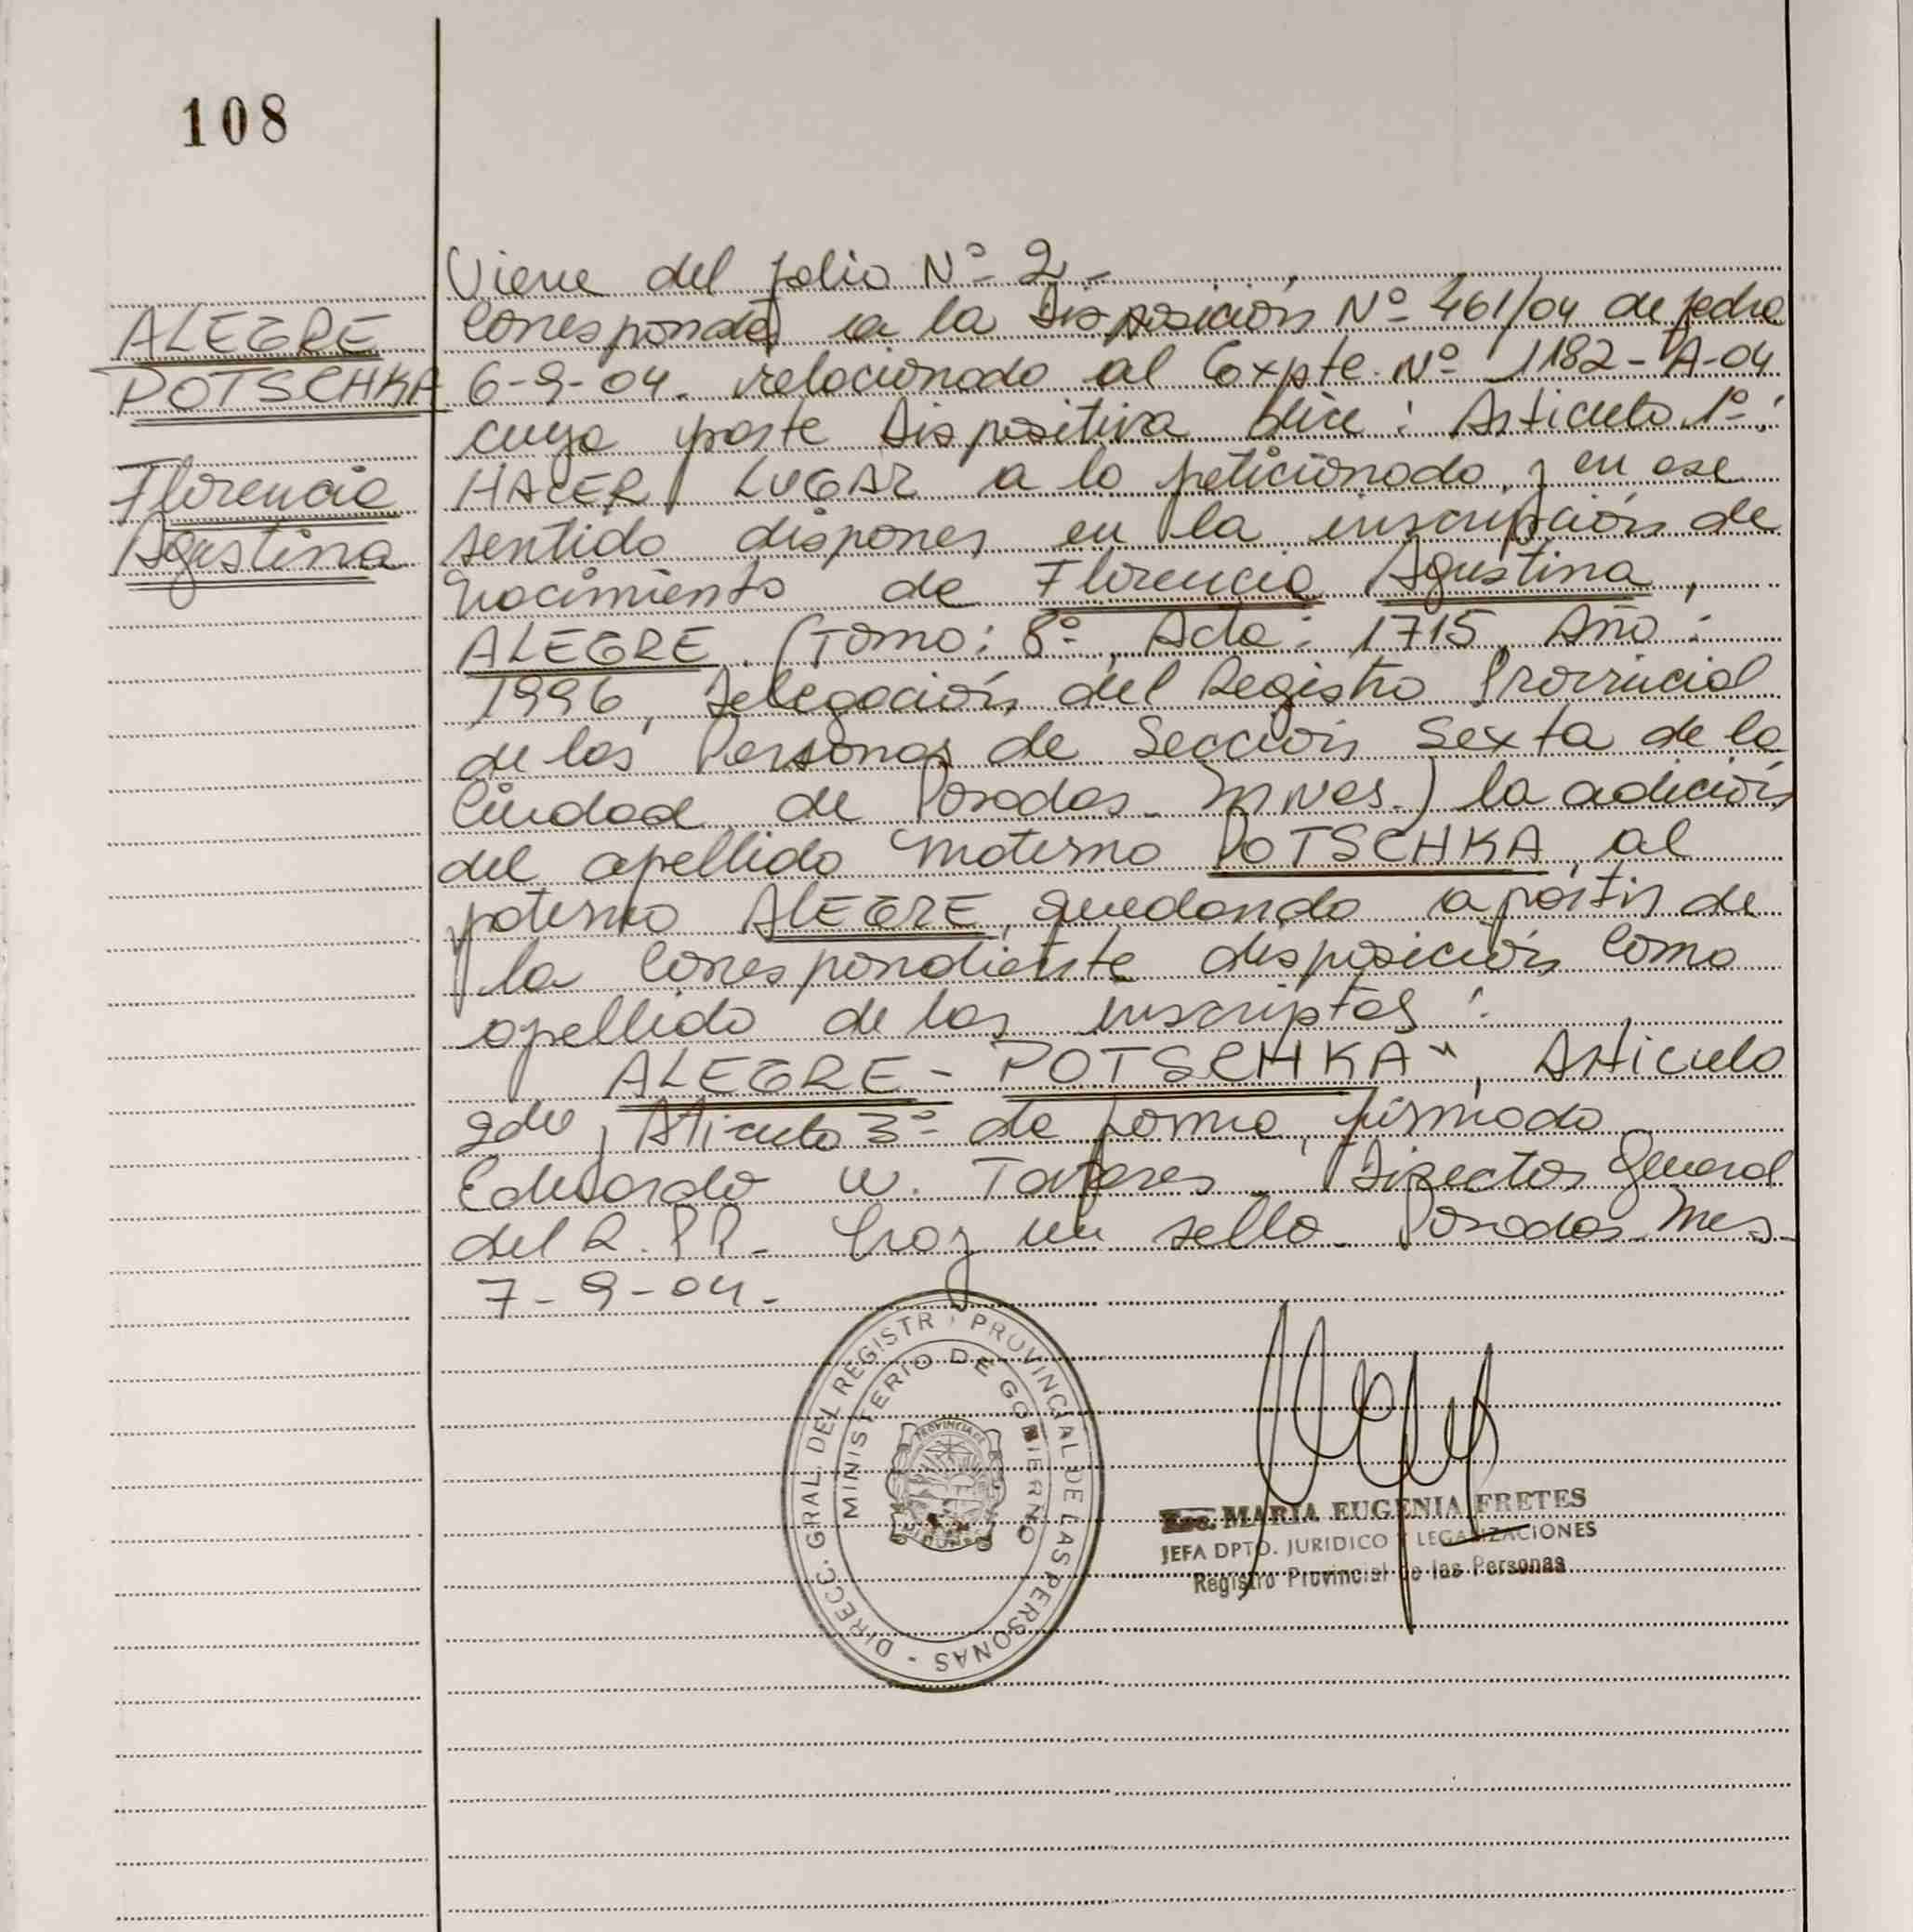 108
ALEGRE
POTSCHKA
Florencia
Agustina
Viene del folio Nº 2.-
Corresponde a la Disposición Nº 461/04 de fecha
6-9-04. relacionado al Expte. Nº 1182-A-04
cuya parte Dispositiva dice: Articulo 1º:
HACER LUGAR a lo peticionado, y en ese
sentido disponer en la inscripción de
nacimiento de Florencia Agustina,
ALEGRE. (Tomo: 8º, Acta: 1715, Año:
1996, Delegación del Registro Provincial
de las Personas de Sección Sexta de la
Ciudad de Posadas. Mnes.) la adición
del apellido materno POTSCHKA, al
paterno ALEGRE, quedando a partir de
la correspondiente disposición como
apellido de los inscriptos:
ALEGRE - POTSCHKA", Articulo
2do, Articulo 3º de forma, firmado
Eduardo W. Tavares. Director General
del R.PP. hay un sello. Posadas. Mnes.-
7-9-04.-
DIRECC. GRAL. DEL REGISTR PROVINCIAL DE LAS PERSONAS -
MINISTERIO DE GOBIERNO
PROVINCIA DE
MARIA EUGENIA FRETES
JEFA DPTO. JURIDICO Y LEGALIZACIONES
Registro Provincial de las Personas